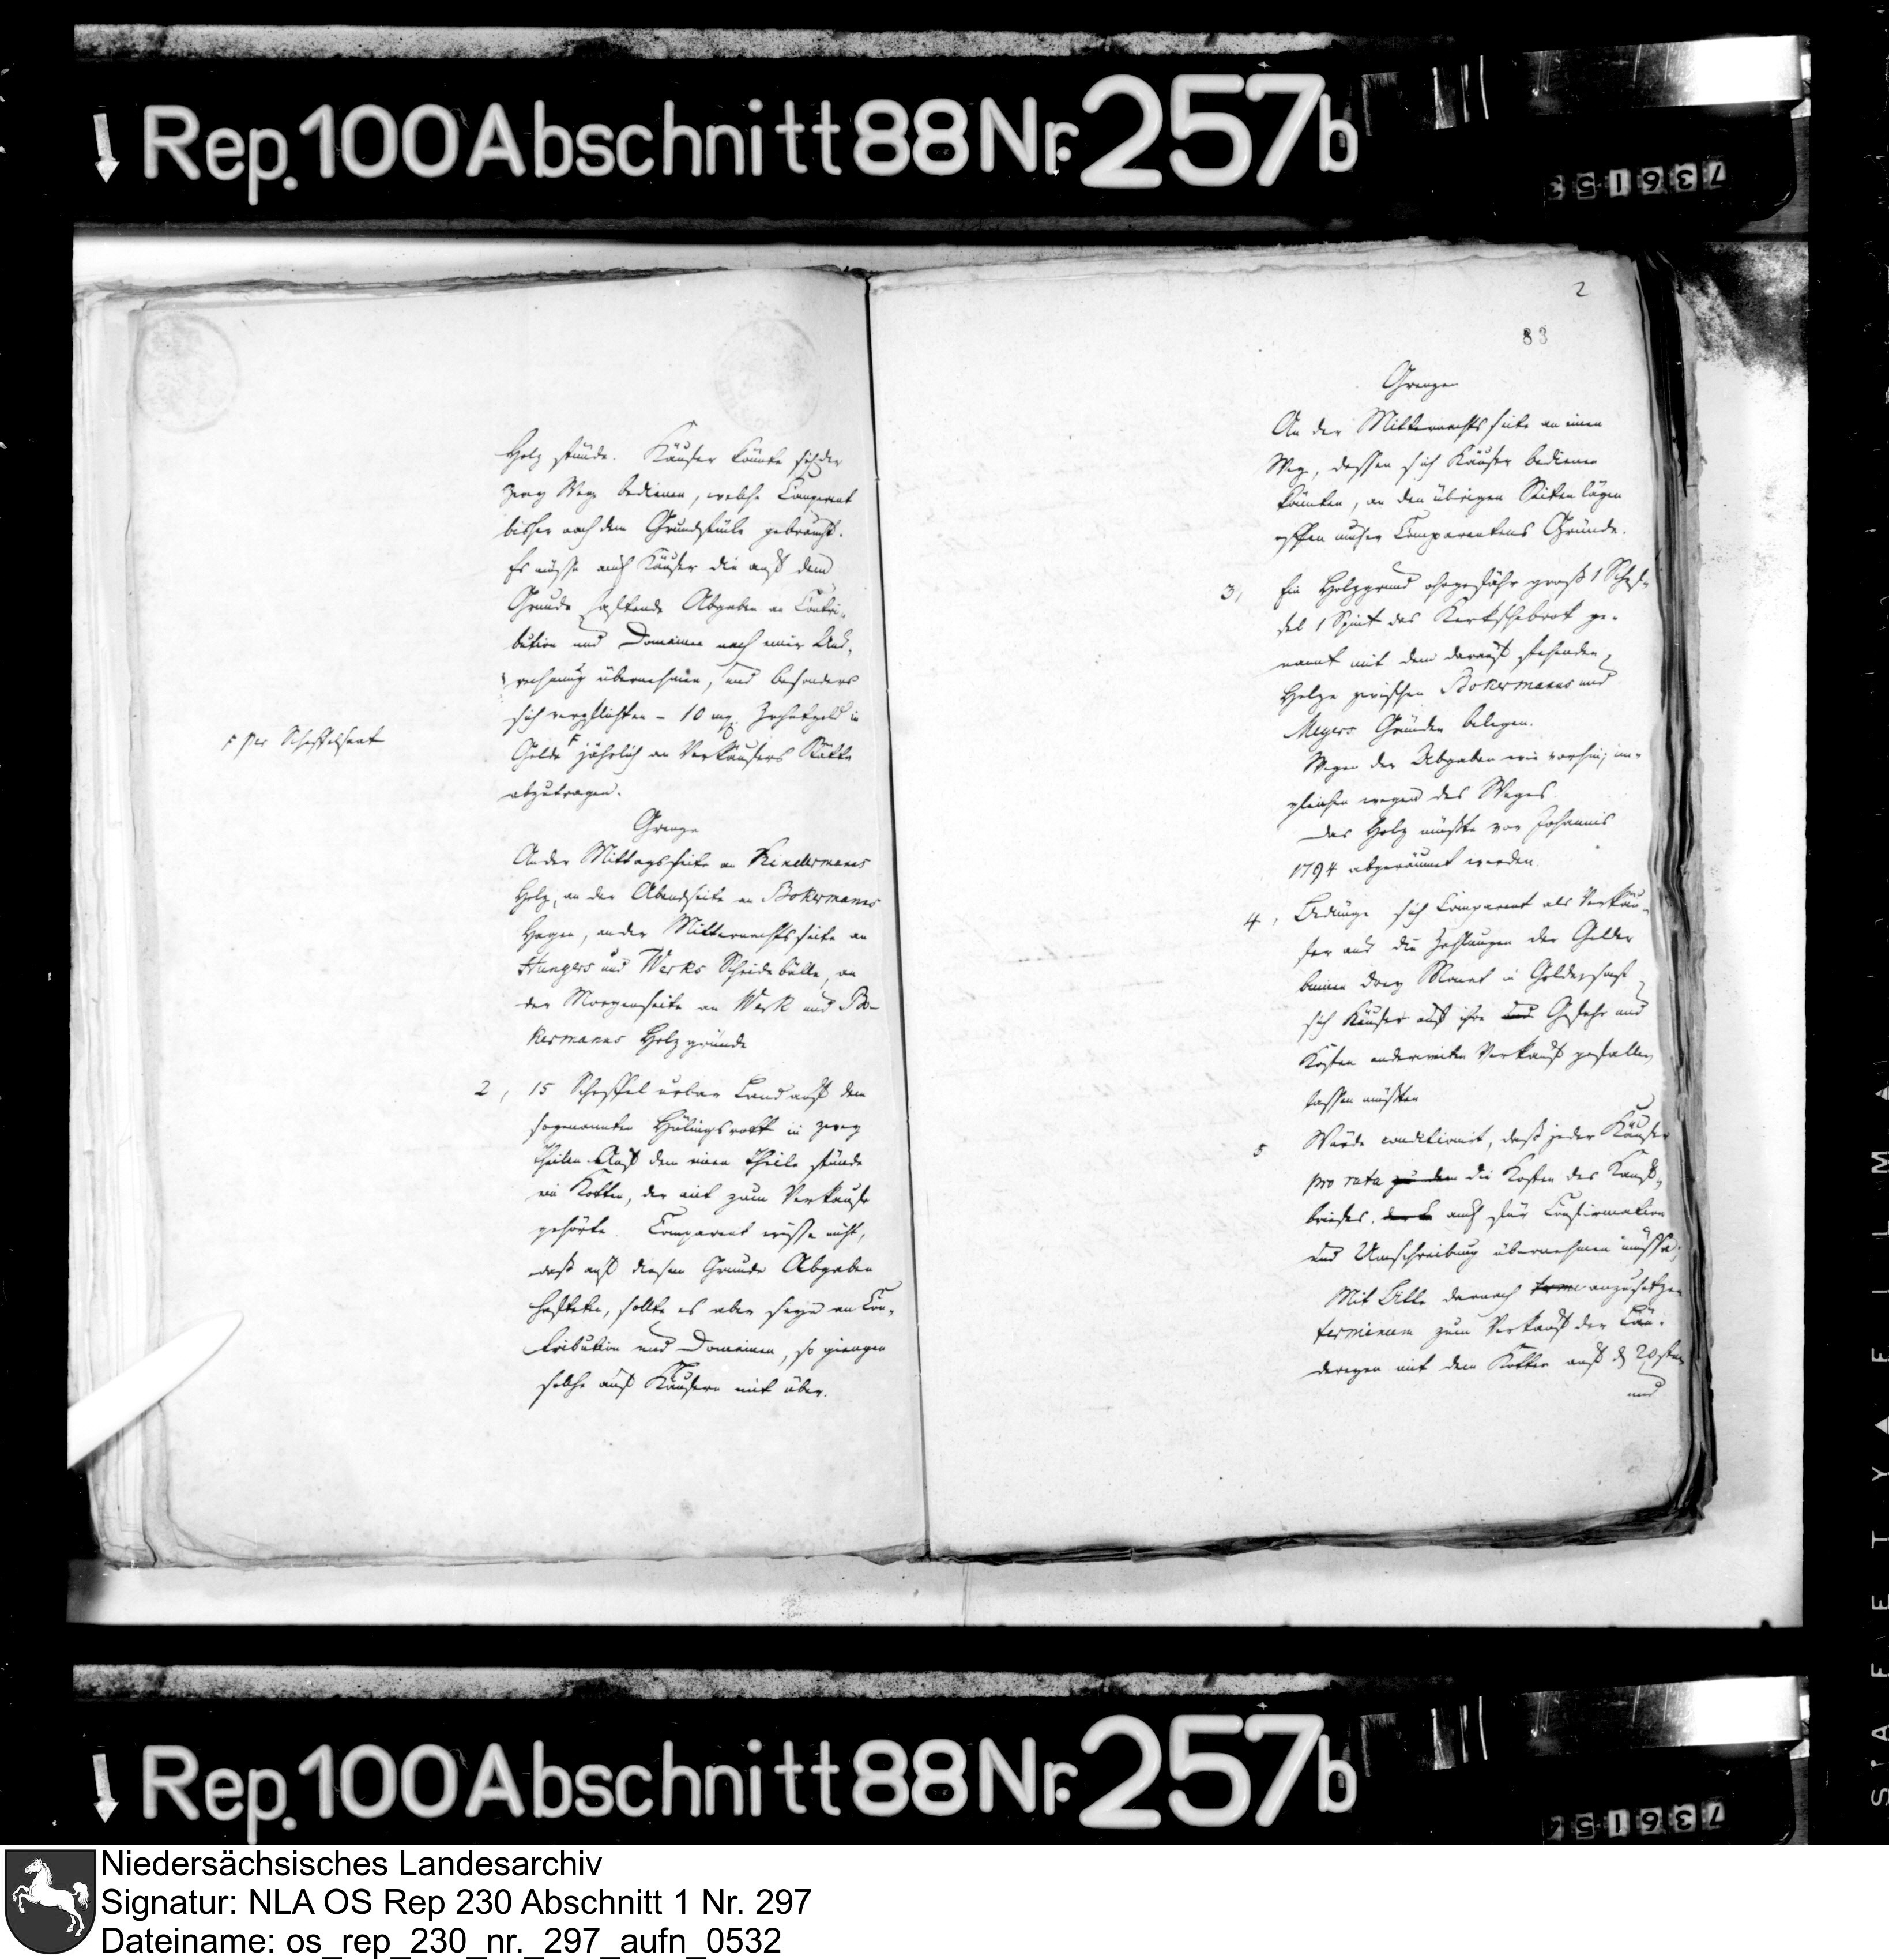 Rep. 100 Abschnitt 88 Nr. 257b
736153
Holz stünde. Käufer könnte sich der
zwey Wege bedienen, welche Comparent
bisher nach dem Grundstücke gebraucht.
Es müsse auch Käufer die auf dem
Grunde haftende Abgaben an Contri-
bution und Domainen nach einer Aus-
rechnung übernehmen, und besonders
sich verpflichten – 10 mg. Zehntgeld in
Golde F jährlich an Verkäufers Stätte
abzutragen.
F per Scheffelsaat
Grenze
An der Mittagsseite an Kindermanns
Holz, an der Abendseite an Bokermanns
Hagen, an der Mitternachtsseite an
Hungers und Werks Scheide, an
der Morgenseite an Werk und Bo-
kermanns Holzgründe
2, 15 Scheffel urbar Land auf dem
sogenannten in zwey
Theilen. Auf dem einen Theile stünde
ein Kotten, der mit zum Verkaufe
gehörte. Comparent wisse nicht,
daß auf diesem Grunde Abgaben
hafteten, sollte es aber seyn an Con-
tribution und Domainen, so giengen
solche auf Käufern mit über.
2
83
Grenzen
An der Mitternachtsseite an einen
Weg, dessen sich Käufer bedienen
könnten, an den übrigen Seiten lägen
offen unser Comparentens Gründe.
3, Ein Holzgrund ohngefähr groß 1 Schef-
fel 1 Spint das Kerkschebrok ge-
nannt mit dem darauf stehenden
Holze zwischen Bokermanns und
Meyers Gründen belegen.
Wegen der Abgaben wie vorhin; im-
gleichen wegen des Weges.
Das Holz müßte vor Johannis
1794 abgeräumt werden.
4, Bedinge sich Comparent als Verkäu-
fer aus die Zahlungen der Gelder
binnen drey Monat in Golde, sonst
sich Käufer auf ihre Gefahr und
Kosten anderweiten Verkauf gefallen
lassen müßten
5 Würde conditionirt, daß jeder Käufer
pro rata zu den die Kosten des Kauf-
briefes, auch für Confirmation
und Umschreibung übernehmen müsse;
Mit Bitte darnach anzusetzen
terminum zum Verkauf der Län-
dereyen mit dem Kotten auf d 20sten
und
Rep. 100 Abschnitt 88 Nr. 257b
SAFETY FILM
Niedersächsisches Landesarchiv
Signatur: NLA OS Rep 230 Abschnitt 1 Nr. 297
Dateiname: os_rep_230_nr._297_aufn_0532